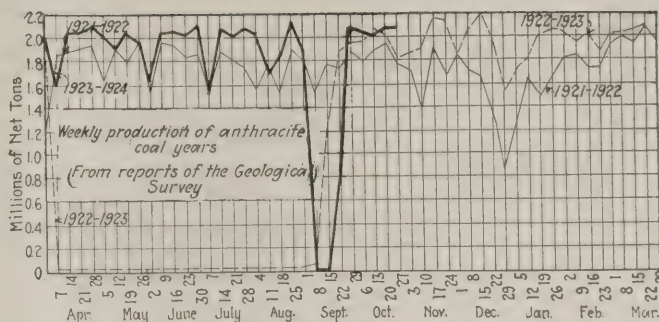 Millions of Net Tons
2.2
2.0
1.8
1.6
1.4
1.2
1.0
0.8
0.6
0.4
0.2
0
1921-1922
1922-1923
1923-1924
1921-1922
Weekly production of anthracite
coal years
(From reports of the Geological
Survey
1922-1923
7 14 21 28 5 12 19 26 2 9 16 23 30 7 14 21 28 4 11 18 25 1 8 15 22 29 6 13 20 27 3 10 17 24 1 8 15 22 29 5 12 19 26 2 9 16 23 1 8 15 22
Apr. May June July Aug. Sept. Oct. Nov. Dec. Jan. Feb. Mar.